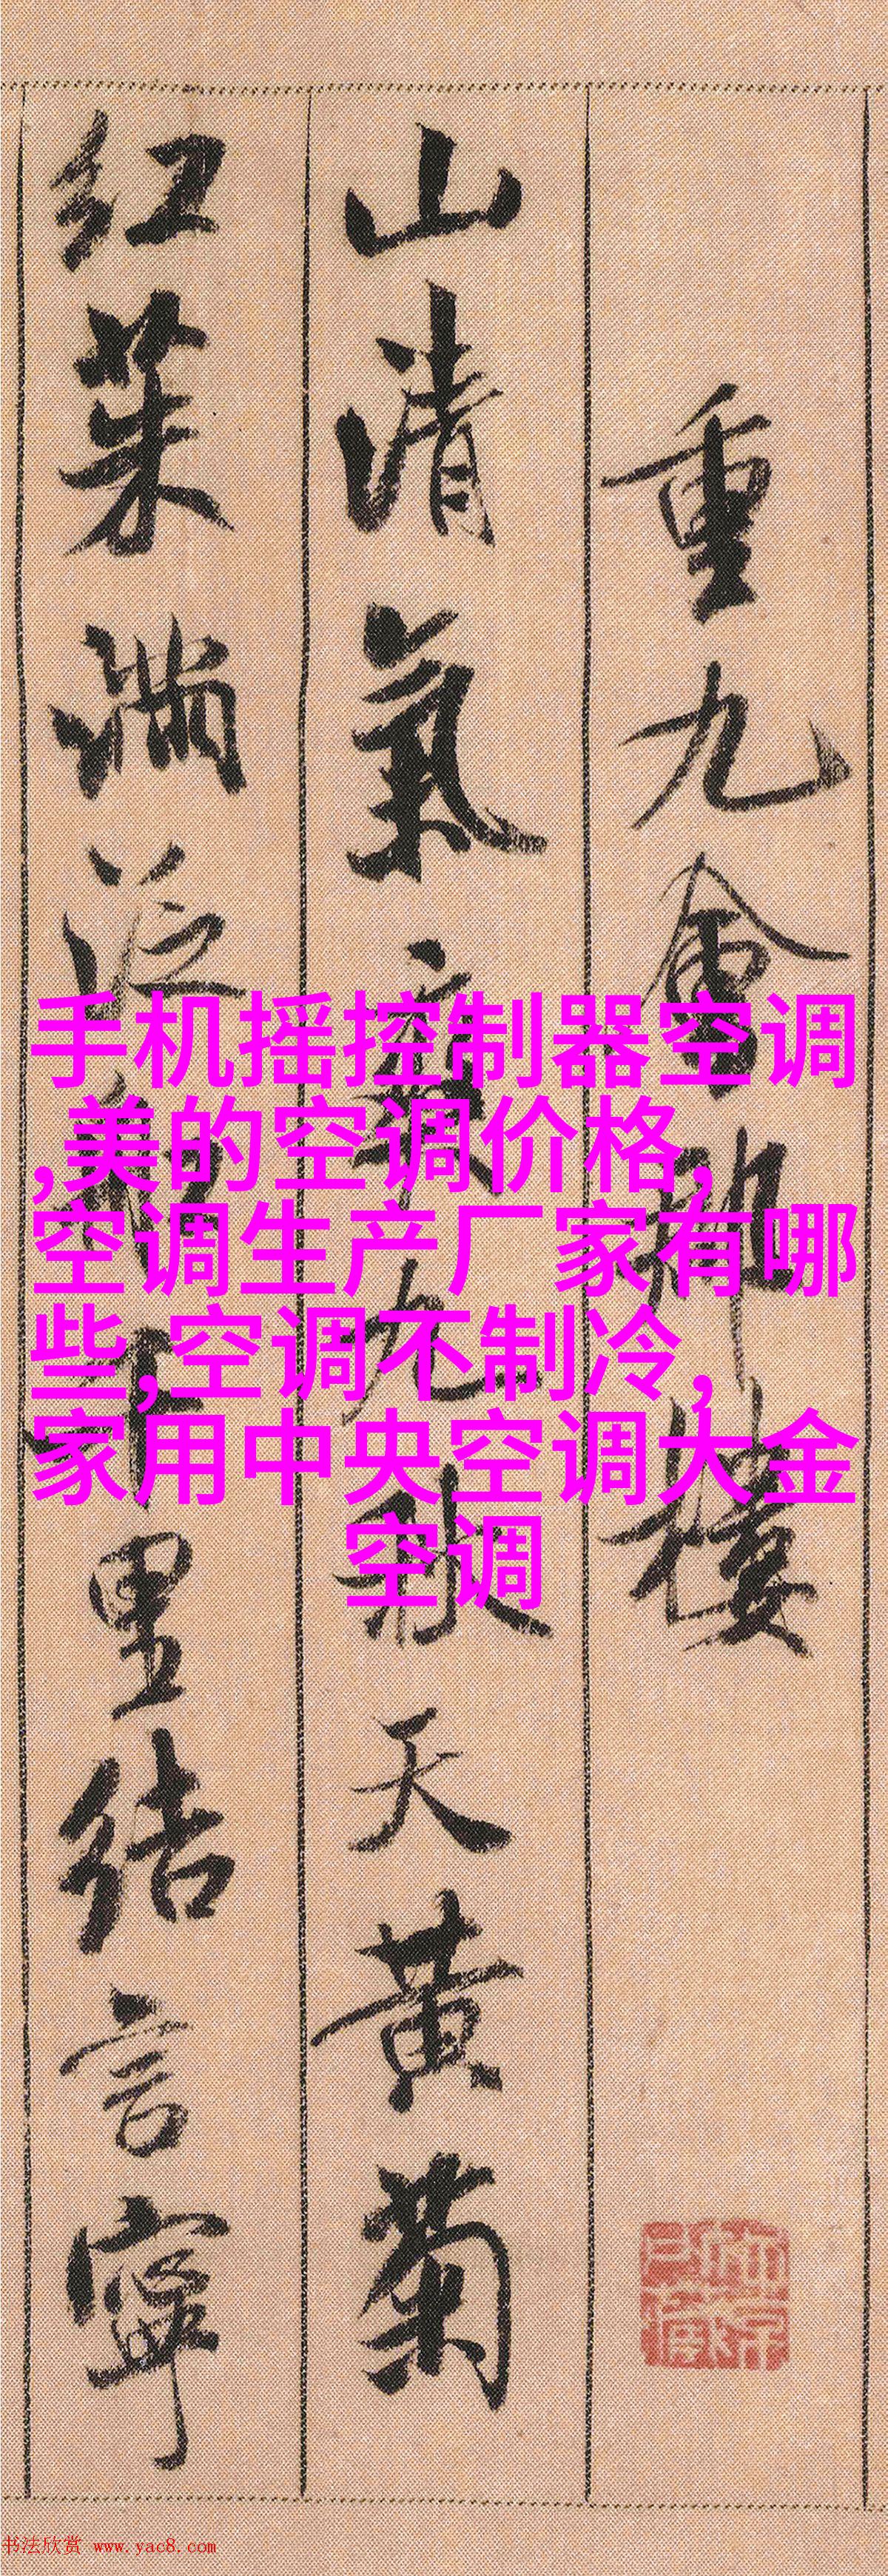 重九會郡樓
山清氣爽九秋天黃菊
紅茱滿泛船千里結言寧
手机摇控制器空调
,美的空调价格,
空调生产厂家有哪
些,空调不制冷,
家用中央空调大金
空调
书法欣赏 www.yac8.com